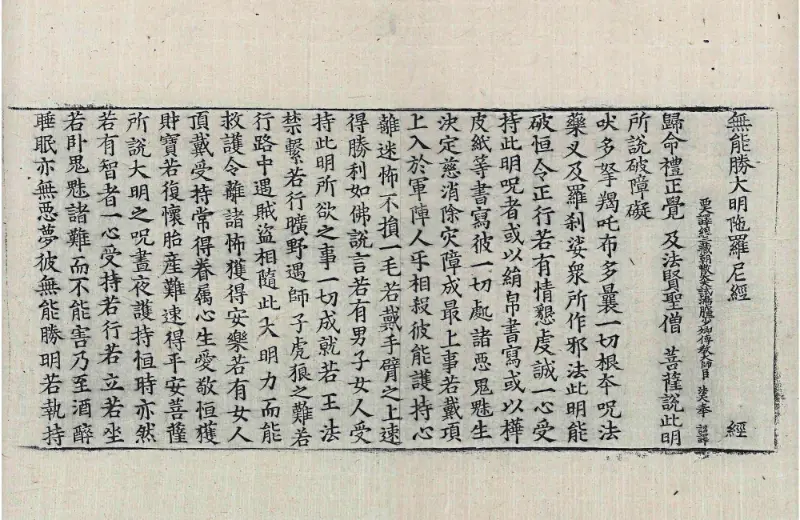 無能勝大明陁羅尼經 經
西天譯經三藏朝散大夫試鴻臚少卿傳教大師臣 法天奉 詔譯
歸命禮正覺 及法賢聖僧 菩薩說此明
所說破障礙
吠多拏羯吒布多曩一切根夲呪法
藥叉及羅刹娑衆所作邪法此明能
破恒令正行若有情懇虔誠一心受
持此明呪者或以絹帛書寫或以樺
皮紙等書寫彼一切處諸惡鬼魅生
決定慈消除灾障成最上事若戴項
上入於軍陣人㸦相殺彼能護持心
離迷怖不損一毛若戴手臂之上速
得勝利如佛說言若有男子女人受
持此明所欲之事一切成就若王法
禁繫若行曠野遇師子虎狼之難若
行路中遇賊盜相隨此大明力而能
救護令離諸怖獲得安樂若有女人
頂戴受持常得眷屬心生愛敬恒獲
財寶若復懷胎産難速得平安菩薩
所說大明之呪晝夜護持恒時亦然
若有智者一心受持若行若立若坐
若卧鬼魅諸難而不能害乃至酒醉
睡眠亦無惡夢彼無能勝明若執持